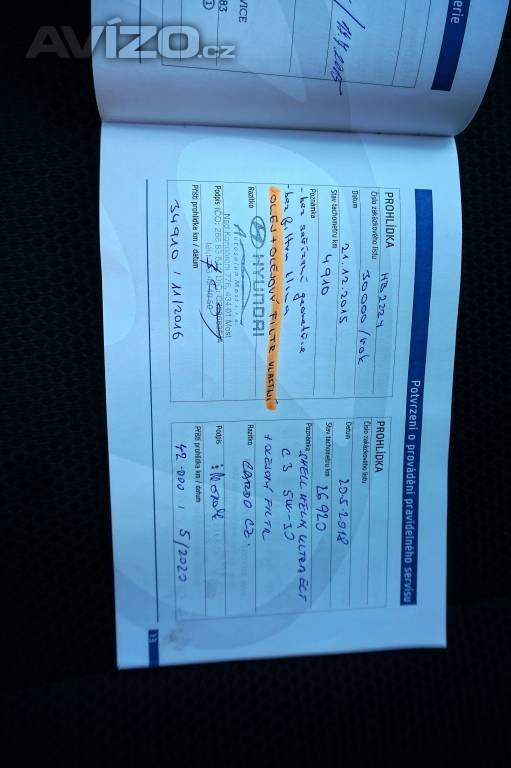 AVÍZO.cz
Potvrzení o provádění pravidelného servisu
PROHLÍDKA
Číslo zakázkového listu HB2224
30000 / rok
Datum 21.12.2015
Stav tachometru km 4910
Poznámka
- bez seřízení geometrie
- bez filtru klima
OLEJ + OLEJOVÝ FILTR VLASTNÍ
Razítko
HYUNDAI
Autosalon Most
776, 434 01 Most
Podpis
Příští prohlídka km / datum
34910 / 11/2016
PROHLÍDKA
Číslo zakázkového listu
Datum 20.5.2018
Stav tachometru km 26920
Poznámka SHELL HELIX ULTRA ECT
C3 5W-30
+ OLEJOVÝ FILTR
Razítko
Podpis
Příští prohlídka km / datum
42.000 / 5/2020
33